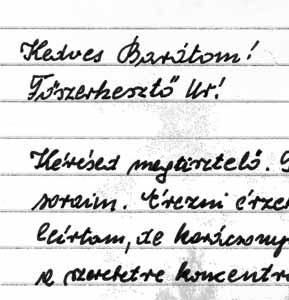 Kedves Barátom!
Főszerkesztő Ur!
Kérésed megtisztelő.
soraim. Érezni érze
leírtam, de karácsony
a szeretetre koncentr